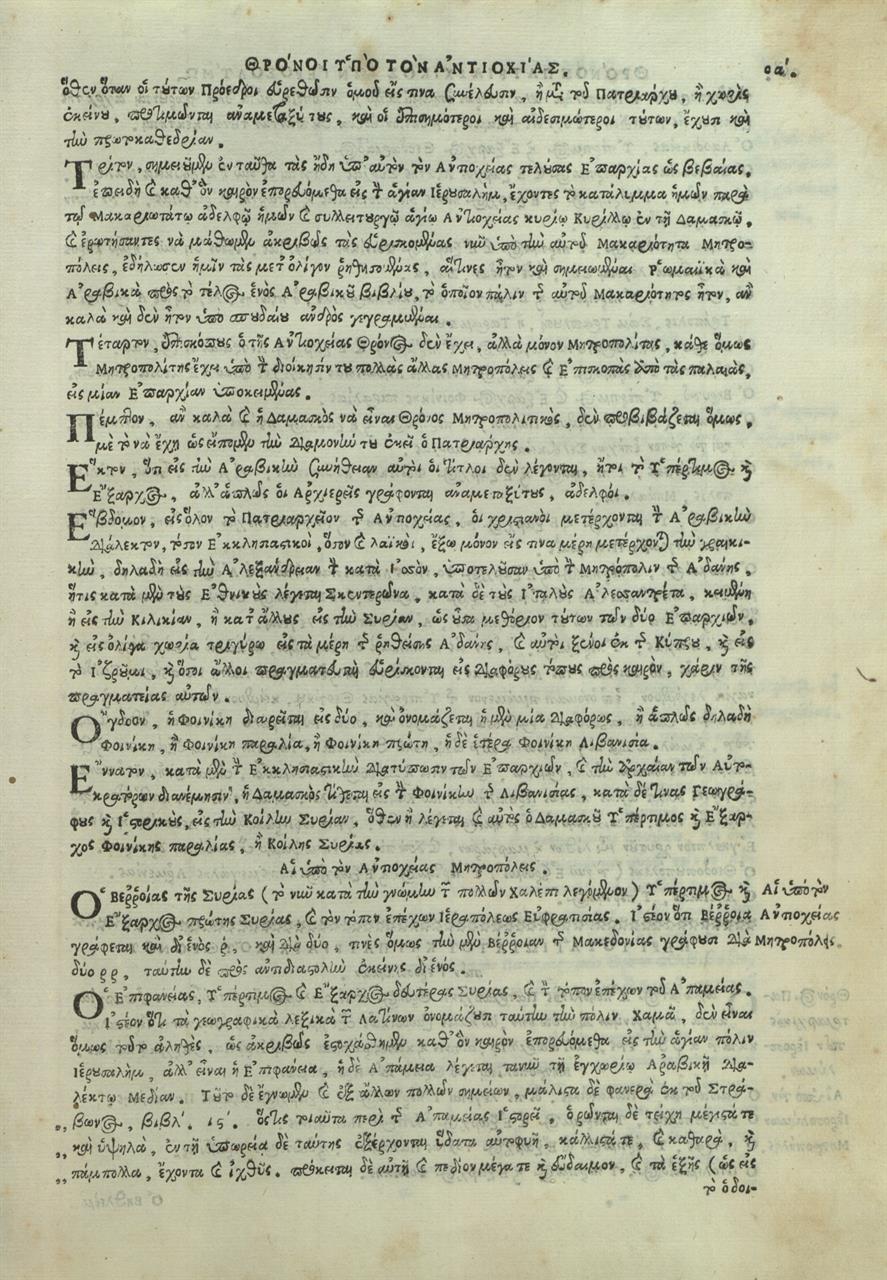 ΘΡΟΝΟΙ ΥΠΟ ΤΟΝ ΑΝΤΙΟΧΙΑΣ. οα΄.
ὅθεν ὅταν οἱ τούτων Πρόεδροι εὑρεθῶσιν ὁμοῦ εἴς τινα συνέλευσιν, ἢ μὲ τοῦ Πατριάρχου, ἢ χωρὶς
ἐκείνου, προτιμῶνται ἀναμεταξύ τους, καὶ οἱ ἐπισημότεροι καὶ αἰδεσιμώτεροι τούτων, ἔχουσι καὶ
τὴν πρωτοκαθεδρίαν.
Τρίτον, σημειοῦμεν ἐνταῦθα τὰς ἤδη ὑπ' αὐτὸν τὸν Ἀντιοχείας τελούσας Ἐπαρχίας ὡς βεβαίας.
ἐπειδὴ ϗ καθ' ὃν καιρὸν ἐπορευόμεθα εἰς τὴν ἁγίαν Ἱερουσαλὴμ, ἔχοντες τὸ κατάλυμμα ἡμῶν παρὰ
τῷ Μακαριωτάτῳ ἀδελφῷ ἡμῶν ϗ συλλειτουργῷ ἁγίῳ Ἀντιοχείας κυρίῳ Κυρίλλῳ ἐν τῇ Δαμασκῷ.
ϗ ἐρωτήσαντες νὰ μάθωμεν ἀκριβῶς τὰς εὑρισκομένας νῦν ὑπὸ τὴν αὐτοῦ Μακαριότητα Μητρο-
πόλεις, ἐδήλωσεν ἡμῖν τὰς μετ' ὀλίγον ῥηθησομένας, αἵτινες ἦτον καὶ σημειωμέναι Ῥωμαϊκὰ καὶ
Ἀραβικὰ πρὸς τὸ τέλος ἑνὸς Ἀραβικοῦ βιβλίου, τὸ ὁποῖον πάλιν τῆς αὐτοῦ Μακαριότητος ἦτον, ἂν
καλὰ καὶ δὲν ἦτον ὑπὸ σπουδαίου ἀνδρὸς γεγραμμέναι.
Τέταρτον, Ἐπισκόπους ὁ τῆς Ἀντιοχείας Θρόνος δὲν ἔχει, ἀλλὰ μόνον Μητροπολίτας, κάθε ὅμως
Μητροπολίτης ἔχει ὑπὸ τὴν διοίκησίν του πολλὰς ἄλλας Μητροπόλεις ϗ Ἐπισκοπὰς ἀπὸ τὰς παλαιὰς,
εἰς μίαν Ἐπαρχίαν ὑποκειμένας.
Πέμπτον, ἂν καλὰ ϗ ἡ Δαμασκὸς νὰ εἶναι Θρόνος Μητροπολιτικὸς, δὲν προβιβάζεται ὅμως,
μὲ τὸ νὰ ἔχῃ ὡς εἴπομεν τὴν διαμονήν του ἐκεῖ ὁ Πατριάρχης.
Ἕκτον, ὅτι εἰς τὴν Ἀραβικὴν συνήθειαν αὐτοὶ οἱ τίτλοι δὲν λέγονται, ἤτοι τὸ Ὑπέρτιμος ϗ
Ἔξαρχος, ἀλλ' ἁπλῶς οἱ Ἀρχιερεῖς γράφονται ἀναμεταξύτους, ἀδελφοί.
Ἕβδομον, εἰς ὅλον τὸ Πατριαρχεῖον τῆς Ἀντιοχείας, οἱ χριστιανοὶ μετέρχονται τὴν Ἀραβικὴν
διάλεκτον, τόσον Ἐκκλησιαστικοὶ, ὅσον ϗ λαϊκοὶ, ἔξω μόνον εἴς τινα μέρη μετέρχονται τὴν γραικι-
κὴν, δηλαδὴ εἰς τὴν Ἀλεξάνδρειαν τὴν κατὰ Ἰσσὸν, ὑποτελοῦσαν ὑπὸ τὴν Μητρόπολιν τῆς Ἀδάνης,
ἥτις κατὰ μὲν τοὺς Ἐθνικοὺς λέγεται Σκεντερώνα, κατὰ δὲ τοὺς Ἰταλοὺς Ἀλεσαντρέτα, κειμένη
ἢ εἰς τὴν Κιλικίαν, ἢ κατ' ἄλλους εἰς τὴν Συρίαν, ὡς οὖσα μεθόριον τούτων τῶν δύο Ἐπαρχιῶν.
ϗ εἰς ὀλίγα χωρία τριγύρω εἰς τὰ μέρη τῆς ῥηθείσης Ἀδάνης, ϗ αὐτοὶ ξένοι ἐκ τῆς Κύπρου, ϗ εἰς
τὸ Ἰζρούμι, ϗ ὅσοι ἄλλοι πραγματευταὶ εὑρίσκονται εἰς διαφόρους τόπους πρὸς καιρὸν, χάριν τῆς
πραγματείας αὐτῶν.
Ὄγδοον, ἡ Φοινίκη διαιρεῖται εἰς δύο, καὶ ὀνομάζεται ἡ μὲν μία διαφόρως, ἢ ἁπλῶς δηλαδὴ
Φοινίκη, ἢ Φοινίκη παραλία, ἢ Φοινίκη πρώτη, ἡ δὲ ἑτέρα Φοινίκη Λιβανισία.
Ἔννατον, κατὰ μὲν τὴν Ἐκκλησιαστικὴν διατύπωσιν τῶν Ἐπαρχιῶν, ϗ τὴν ἀρχαίαν τῶν Αὐτο-
κρατόρων διανέμησιν, ἡ Δαμασκὸς τίθεται εἰς τὴν Φοινίκην τῆς Λιβανισίας, κατὰ δέ τινας Γεωγρά-
φους ϗ Ἱστορικοὺς, εἰς τὴν Κοίλην Συρίαν, ὅθεν ἢ λέγεται ϗ αὐτὸς ὁ Δαμασκοῦ Ὑπέρτιμος ϗ Ἔξαρ-
χος Φοινίκης παραλίας, ἢ Κοίλης Συρίας.
Αἱ ὑπὸ τὸν Ἀντιοχείας Μητροπόλεις.
Ὁ Βεῤῥοίας τῆς Συρίας (τὸ νῦν κατὰ τὴν γνώμην τῶν πολλῶν Χαλέπι λεγόμενον) Ὑπέρτιμος ϗ
Ἔξαρχος πρώτης Συρίας, ϗ τὸν τόπον ἐπέχων Ἱεραπόλεως Εὐφρατισίας. Ἰστέον ὅτι Βέῤῥοια
γράφεται καὶ δι' ἑνὸς ρ, καὶ διὰ δύο, τινὲς ὅμως τὴν μὲν Βέῤῥοιαν τῆς Μακεδονίας γράφουσι διὰ
δύο ρρ, ταύτην δὲ πρὸς ἀντιδιαστολὴν ἐκείνης δι' ἑνός.
Αἱ ὑπὸ τὸν
Ἀντιοχείας
Μητροπόλεις.
Ὁ Ἐπιφανείας, Ὑπέρτιμος ϗ Ἔξαρχος δευτέρας Συρίας, ϗ τὸν τόπον ἐπέχων τοῦ Ἀπαμείας.
Ἰστέον ὅτι τὰ γεωγραφικὰ λεξικὰ τῶν Λατίνων ὀνομάζουσι ταύτην τὴν πόλιν Χαμᾶ, δὲν εἶναι
ὅμως τοῦτο ἀληθὲς, ὡς ἀκριβῶς ἐστοχάσθημεν καθ' ὃν καιρὸν ἐπορευόμεθα εἰς τὴν ἁγίαν πόλιν
Ἱερουσαλὴμ, ἀλλ' εἶναι ἡ Ἐπιφανεία, ἡ δὲ Ἀπάμεια λέγεται τανῦν τῇ ἐγχωρίῳ Ἀραβικῇ Δια-
λέκτῳ Μεδίαν. Τοῦτο δὲ ἔγνωμεν ϗ ἐξ ἄλλων πολλῶν σημείων, μάλιστα δὲ φανερὰ ἐκ τοῦ Στρά-
βωνος, βιβλ. ις΄. ὅστις τοιαῦτα περὶ τῆς Ἀπαμείας Ἱστορεῖ, ὁρῶνται δὲ τείχη μέγιστά τε
,, καὶ ὑψηλὰ, ἐν τῇ ὑπωρείᾳ δὲ ταύτης ἐξέρχονται ὕδατα αὐτοφυῆ, κάλλιστά τε, ϗ καθαρὰ, ϗ
,, πάμπολλα, ἔχοντα ϗ ἰχθῦς. πρόκειται δὲ αὐτῇ ϗ πεδίον μέγα τε ϗ εὔδαιμον, ϗ τὰ ἑξῆς (ὡς εἰς
τὸ ὁδοι-